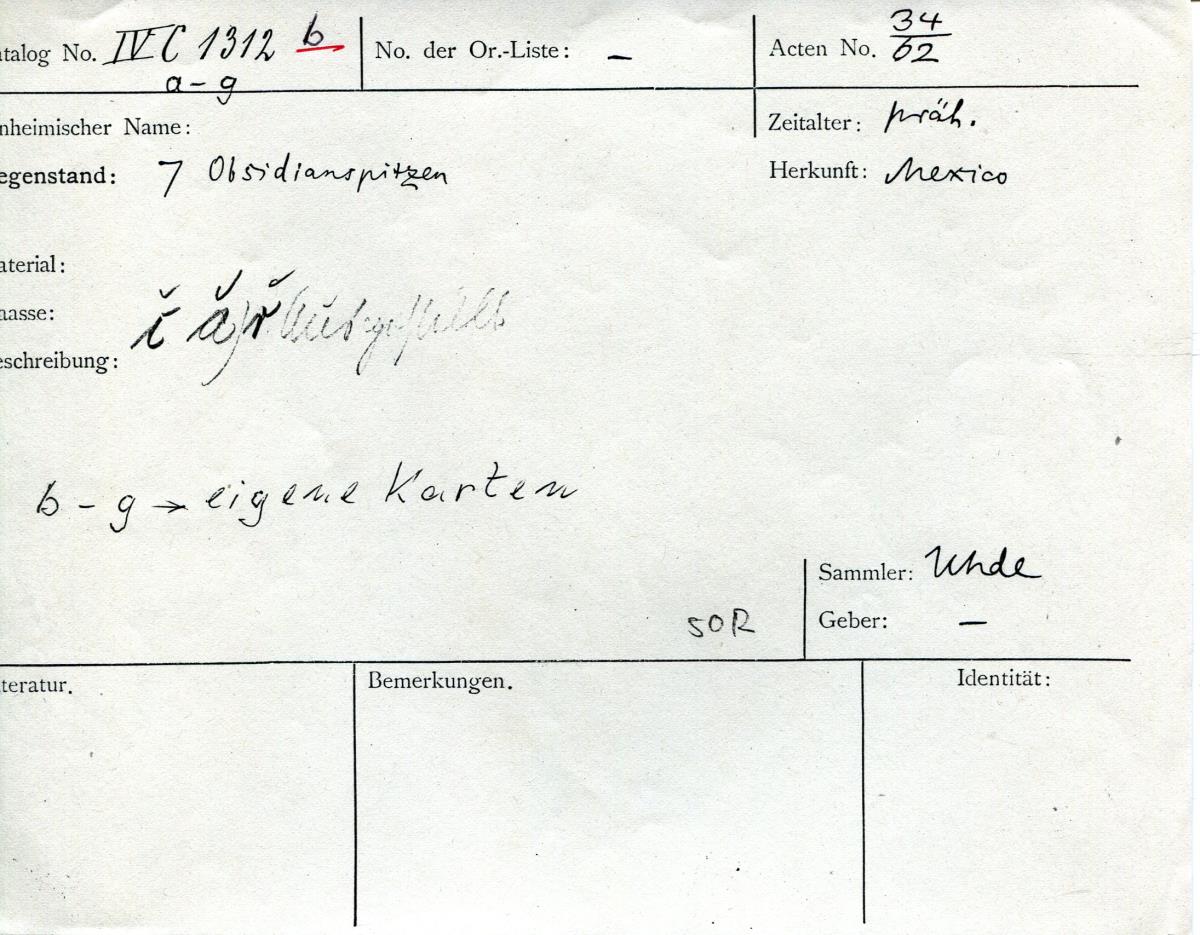 atalog No. IV C 1312 b
a - g
No. der Or.-Liste: –
Acten No. 34/62
nheimischer Name:
Zeitalter: präh.
egenstand: 7 Obsidianspitzen
Herkunft: Mexico
aterial:
aasse:
eschreibung:
b - g → eigene Karten
Sammler: Uhde
SOR
Geber: –
teratur.
Bemerkungen.
Identität: